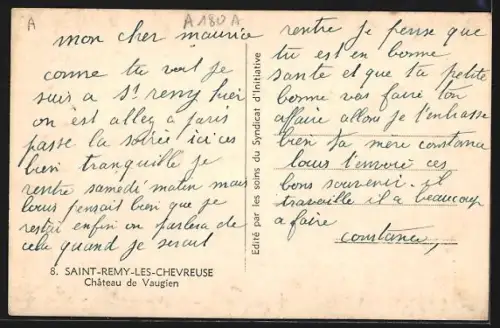 A
A 180 A
mon cher maurice
comme tu voit je
suis a St remy hier
on est alley a paris
passe la soirée ici ces
bien tranquille je
rentre samedi matin mais
lous pensait bien que je
restai enfin on parlera de
cela quand je serait
8. SAINT-REMY-LES-CHEVREUSE
Château de Vaugien
Edité par les soins du Syndicat d'Initiative
rentre je pense que
tu est en bonne
sante et que ta petite
bonne vas faire ton
affaire allons je t'embrasse
bien ta mère constance
lous t'envoie ces
bons souvenir. il
travaille il a beaucoup
a faire
constance,